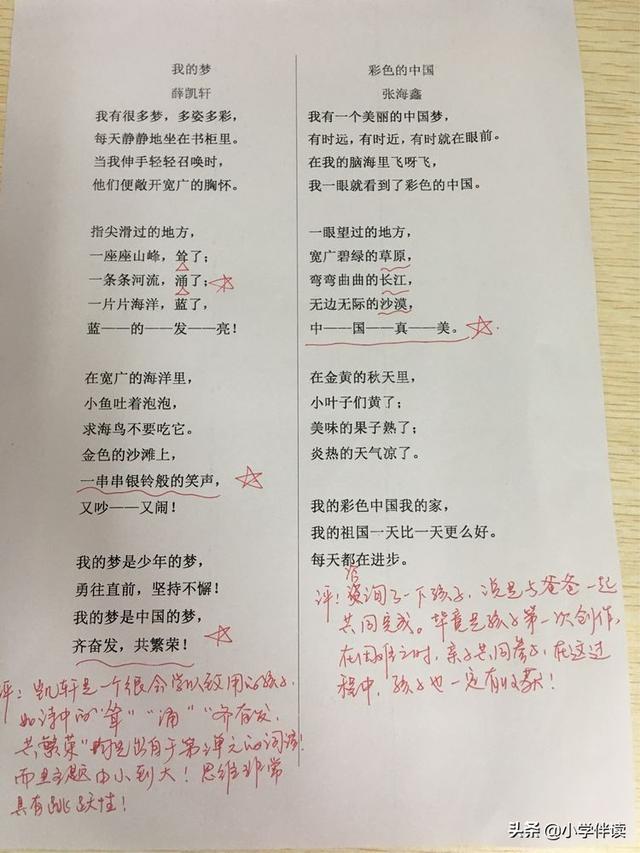 我的梦
薛凯轩
我有很多梦，多姿多彩，
每天静静地坐在书柜里。
当我伸手轻轻召唤时，
他们便敞开宽广的胸怀。
指尖滑过的地方，
一座座山峰，耸了；
一条条河流，涌了；
一片片海洋，蓝了，
蓝——的——发——亮！
在宽广的海洋里，
小鱼吐着泡泡，
求海鸟不要吃它。
金色的沙滩上，
一串串银铃般的笑声，
又吵——又闹！
我的梦是少年的梦，
勇往直前，坚持不懈！
我的梦是中国的梦，
齐奋发，共繁荣！
评：凯轩是一个很会学以致用的孩子，
如诗中的“耸”“涌”“齐奋发，
共繁荣”都是出自于第2单元的词语！
而且主题由小到大！思维非常
具有跳跃性！
彩色的中国
张海鑫
我有一个美丽的中国梦，
有时远，有时近，有时就在眼前。
在我的脑海里飞呀飞，
我一眼就看到了彩色的中国。
一眼望过的地方，
宽广碧绿的草原，
弯弯曲曲的长江，
无边无际的沙漠，
中——国——真——美。
在金黄的秋天里，
小叶子们黄了；
美味的果子熟了；
炎热的天气凉了。
我的彩色中国我的家，
我的祖国一天比一天更么好。
每天都在进步。
评：咨询了一下孩子，说是与爸爸一起
共同完成。毕竟是孩子第一次创作，
在困难之时，亲子共同参与，在这过
程中，孩子也一定有收获！
头条 @小学伴读